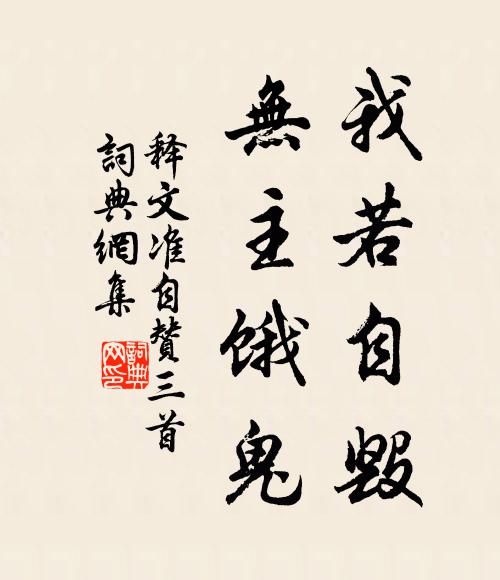 我若自毀
無主餓鬼
释文准自贊三首
詞典網集
詞典
网印